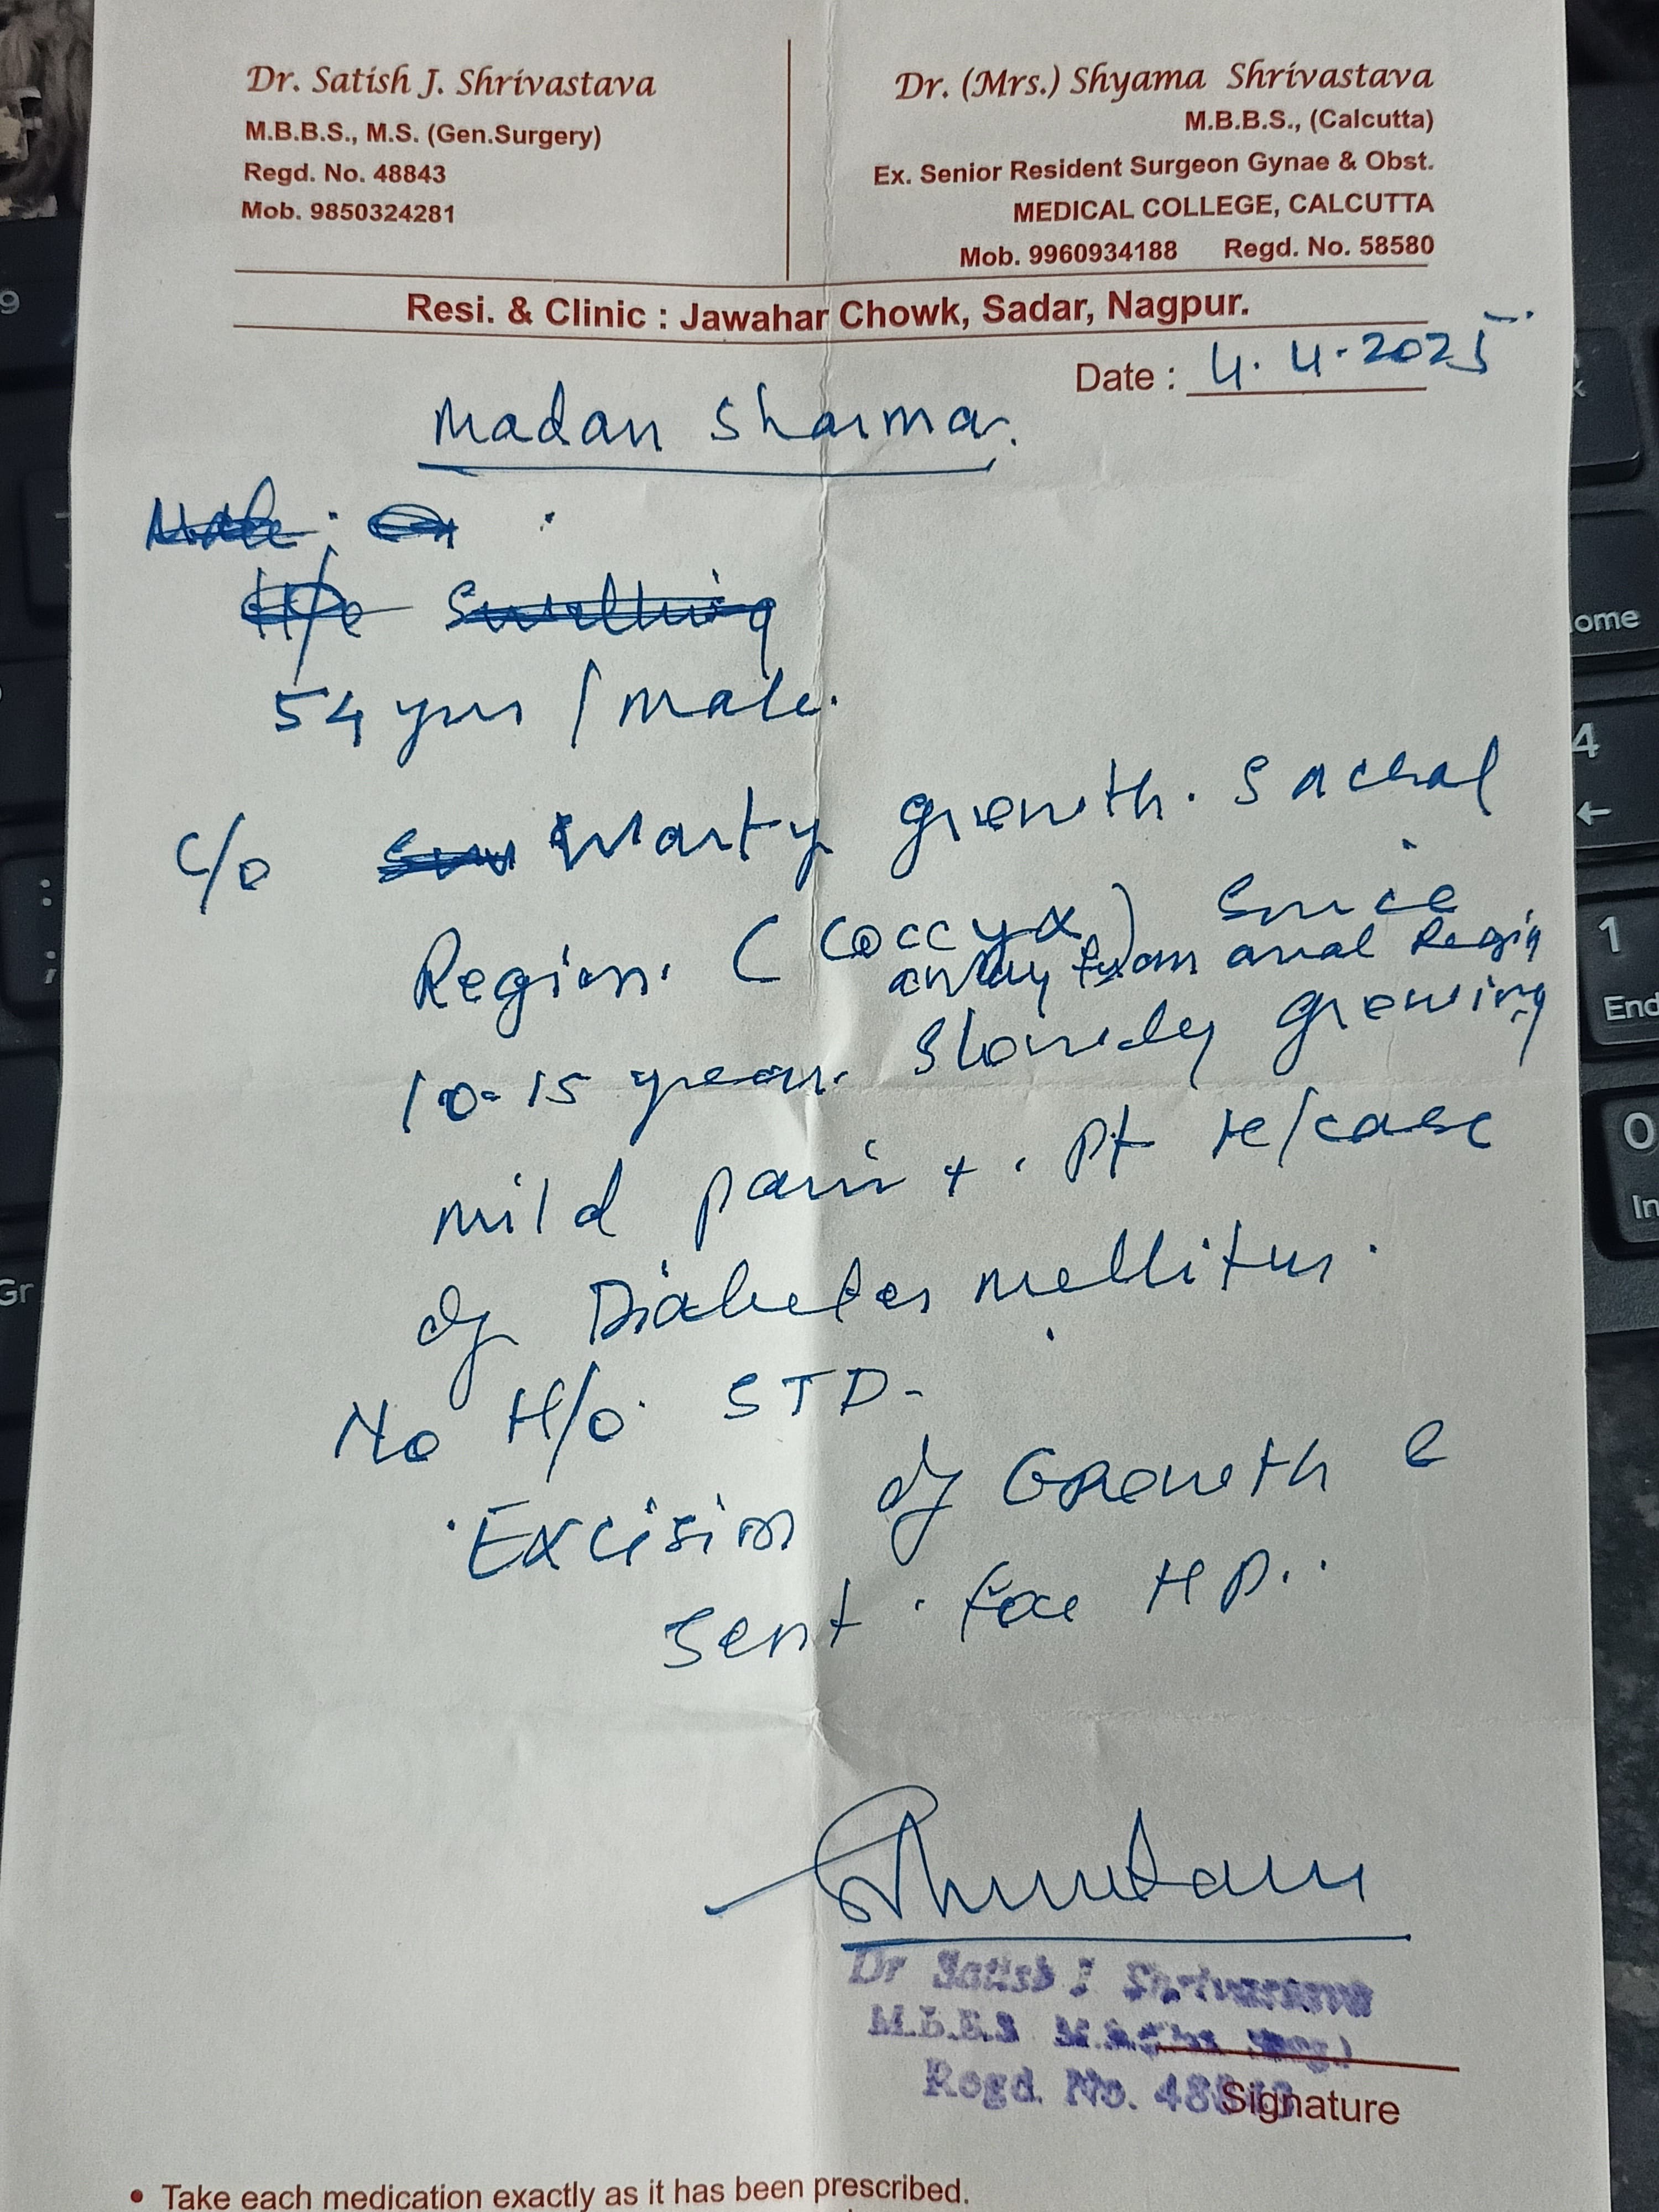 Dr. Satish J. Shrivastava
M.B.B.S., M.S. (Gen.Surgery)
Regd. No. 48843
Mob. 9850324281
Dr. (Mrs.) Shyama Shrivastava
M.B.B.S., (Calcutta)
Ex. Senior Resident Surgeon Gynae & Obst.
MEDICAL COLLEGE, CALCUTTA
Mob. 9960934188 Regd. No. 58580
Resi. & Clinic : Jawahar Chowk, Sadar, Nagpur.
Date : 4.4.2025
Madan Sharma.
54 yrs / male.
c/o Warty growth. Sacral
Region. (Coccyx) Since
away from anal Region
10-15 years. Slowely growing
mild pain +. Pt k/case
of Diabetes mellitus.
No H/o. STD-
Excision of Growth &
Sent. for HP..
Dr Satish J Shrivastava
M.B.B.S M.S.
Regd. No. 48843
Signature
• Take each medication exactly as it has been prescribed.
9
Home
4
←
1
End
0
In
;
:
Gr